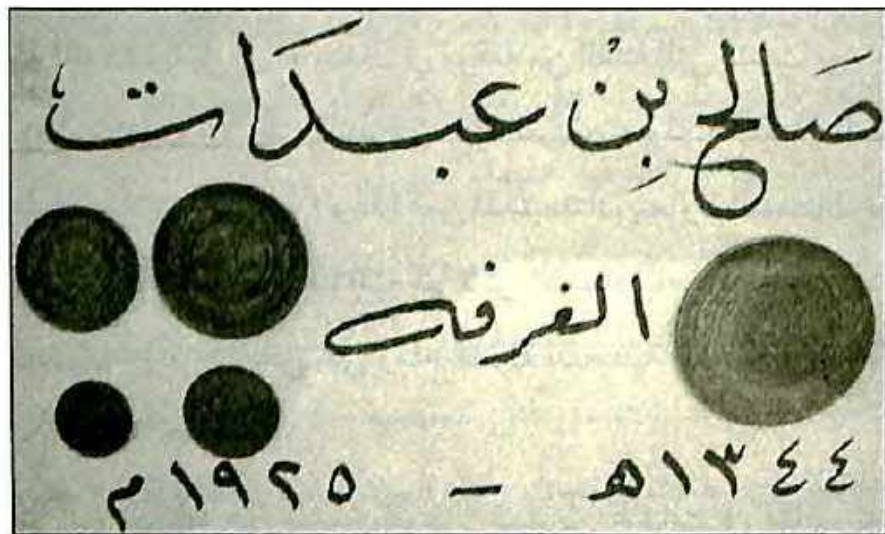 صَالح بِنْ عبدَات
الغرفه
١٣٤٤ھ - ١٩٢٥م